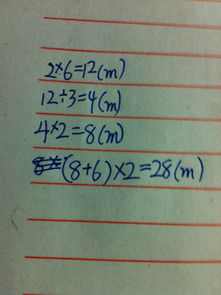 2×6=12(m)
12÷3=4(m)
4×2=8(m)
(8+6)×2=28(m)